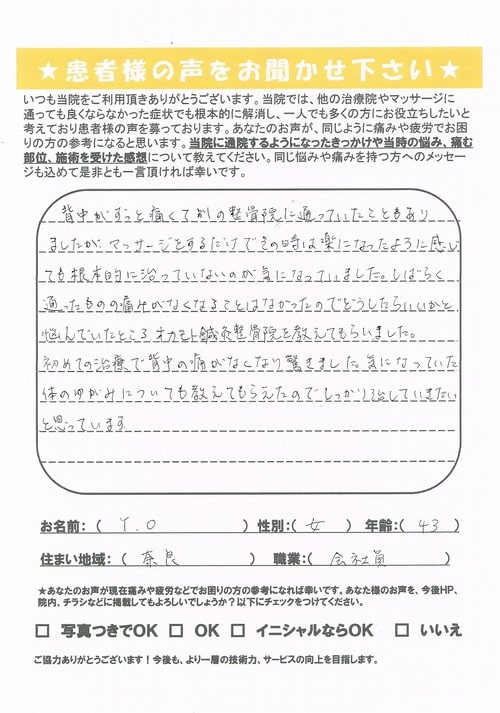 ★患者様の声をお聞かせ下さい★
いつも当院をご利用頂きありがとうございます。当院では、他の治療院やマッサージに
通っても良くならなかった症状でも根本的に解消し、一人でも多くの方にお役立ちしたいと
考えており患者様の声を募っております。あなたのお声が、同じように痛みや疲労でお困
りの方の参考になると思います。当院に通院するようになったきっかけや当時の悩み、痛む
部位、施術を受けた感想について教えてください。同じ悩みや痛みを持つ方へのメッセー
ジも込めて是非とも一言頂ければ幸いです。
背中がずっと痛くて他の整骨院に通っていたこともあり
ましたが マッサージをするだけでその時は楽になったように感じ
ても根本的に治っていないのが気になっていました。しばらく
通ったものの痛みがなくなることはなかったのでどうしたらいいかと
悩んでいたところオカモト鍼灸整骨院を教えてもらいました。
初めての治療で背中の痛がなくなり驚きました。気になっていた
体のゆがみについても教えてもらえたのでしっかり治していきたい
と思っています
お名前:( Y.O ) 性別:( 女 ) 年齢:( 43 )
住まい地域:( 奈良 ) 職業:( 会社員 )
★あなたのお声が現在痛みや疲労などでお困りの方の参考になれば幸いです。あなた様のお声を、今後HP、
院内、チラシなどに掲載してもよろしいでしょうか?以下にチェックをつけてください。
□ 写真つきでOK □ OK □ イニシャルならOK □ いいえ
ご協力ありがとうございます!今後も、より一層の技術力、サービスの向上を目指します。